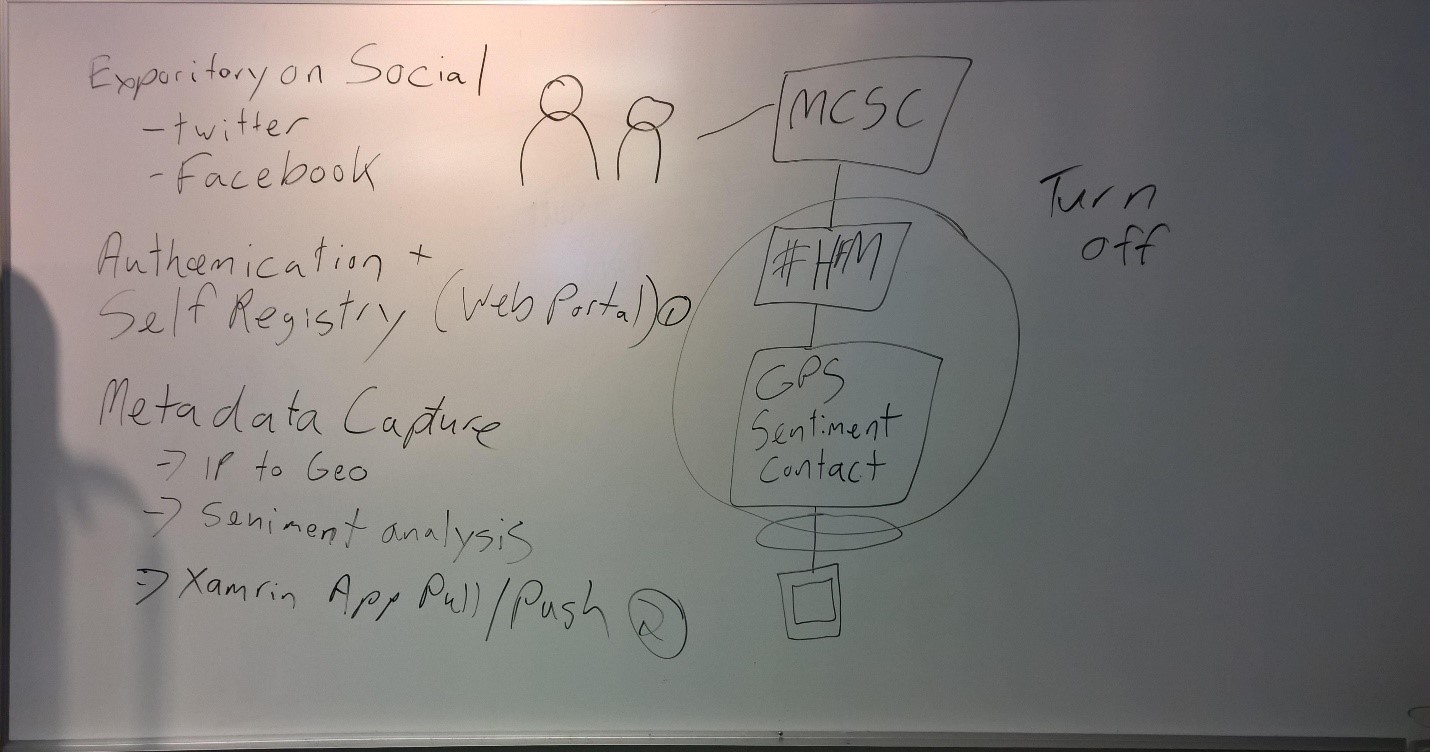 Exporitory on Social
- twitter
- Facebook
Authenication +
Self Registry (Web Portal) 1
Metadata Capture
→ IP to Geo
→ Seniment analysis
⇒ Xamrin App Pull/Push 2
MCSC
#HFM
GPS
Sentiment
Contact
Turn
off